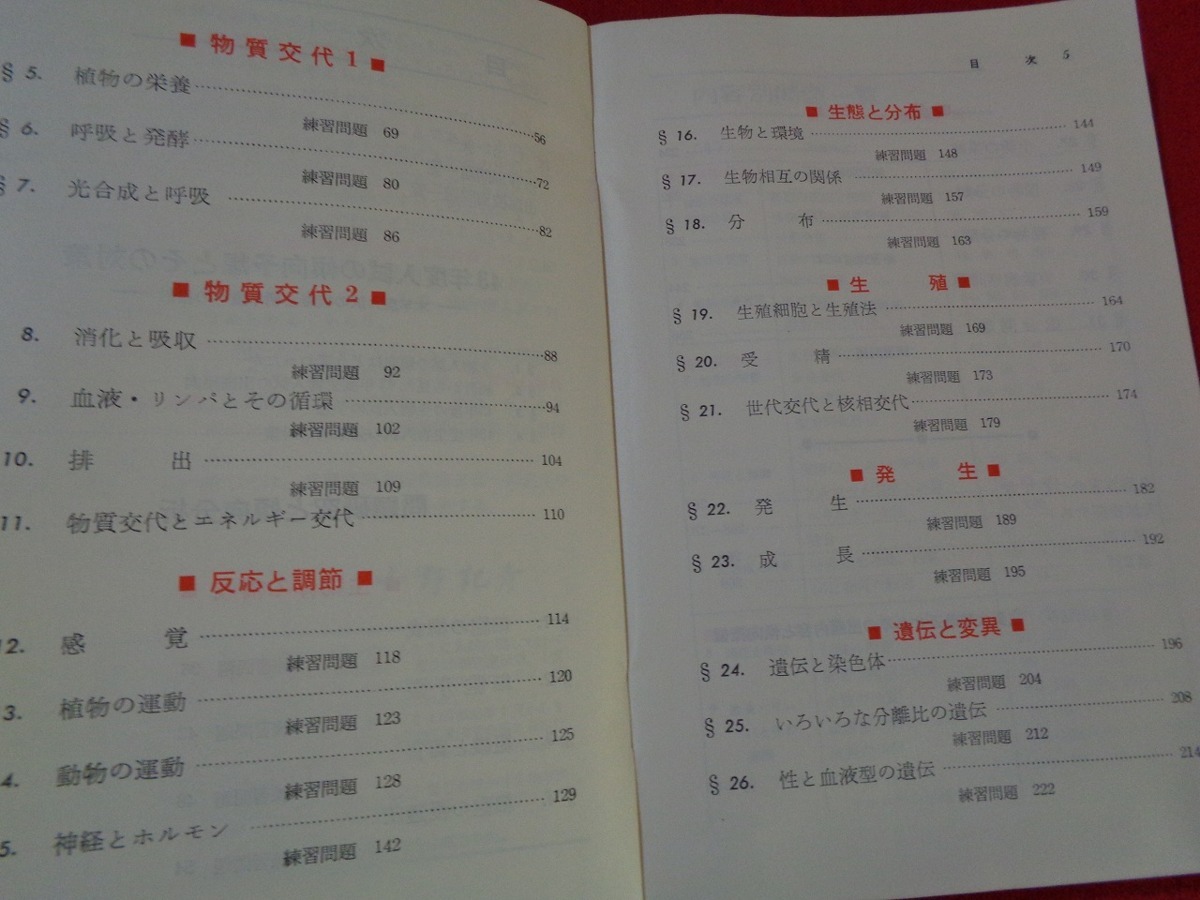 ■ 物質交代 1 ■
§ 5. 植物の栄養……56
練習問題 69
§ 6. 呼吸と発酵……72
練習問題 80
§ 7. 光合成と呼吸……82
練習問題 86
■ 物質交代 2 ■
8. 消化と吸収……88
練習問題 92
9. 血液・リンパとその循環……94
練習問題 102
10. 排出……104
練習問題 109
11. 物質交代とエネルギー交代……110
■ 反応と調節 ■
2. 感覚……114
練習問題 118
3. 植物の運動……120
練習問題 123
4. 動物の運動……125
練習問題 128
5. 神経とホルモン……129
練習問題 142
目次 5
■ 生態と分布 ■
§ 16. 生物と環境……144
練習問題 148
§ 17. 生物相互の関係……149
練習問題 157
§ 18. 分布……159
練習問題 163
■ 生殖 ■
§ 19. 生殖細胞と生殖法……164
練習問題 169
§ 20. 受精……170
練習問題 173
§ 21. 世代交代と核相交代……174
練習問題 179
■ 発生 ■
§ 22. 発生……182
練習問題 189
§ 23. 成長……192
練習問題 195
■ 遺伝と変異 ■
§ 24. 遺伝と染色体……196
練習問題 204
§ 25. いろいろな分離比の遺伝……208
練習問題 212
§ 26. 性と血液型の遺伝……214
練習問題 222